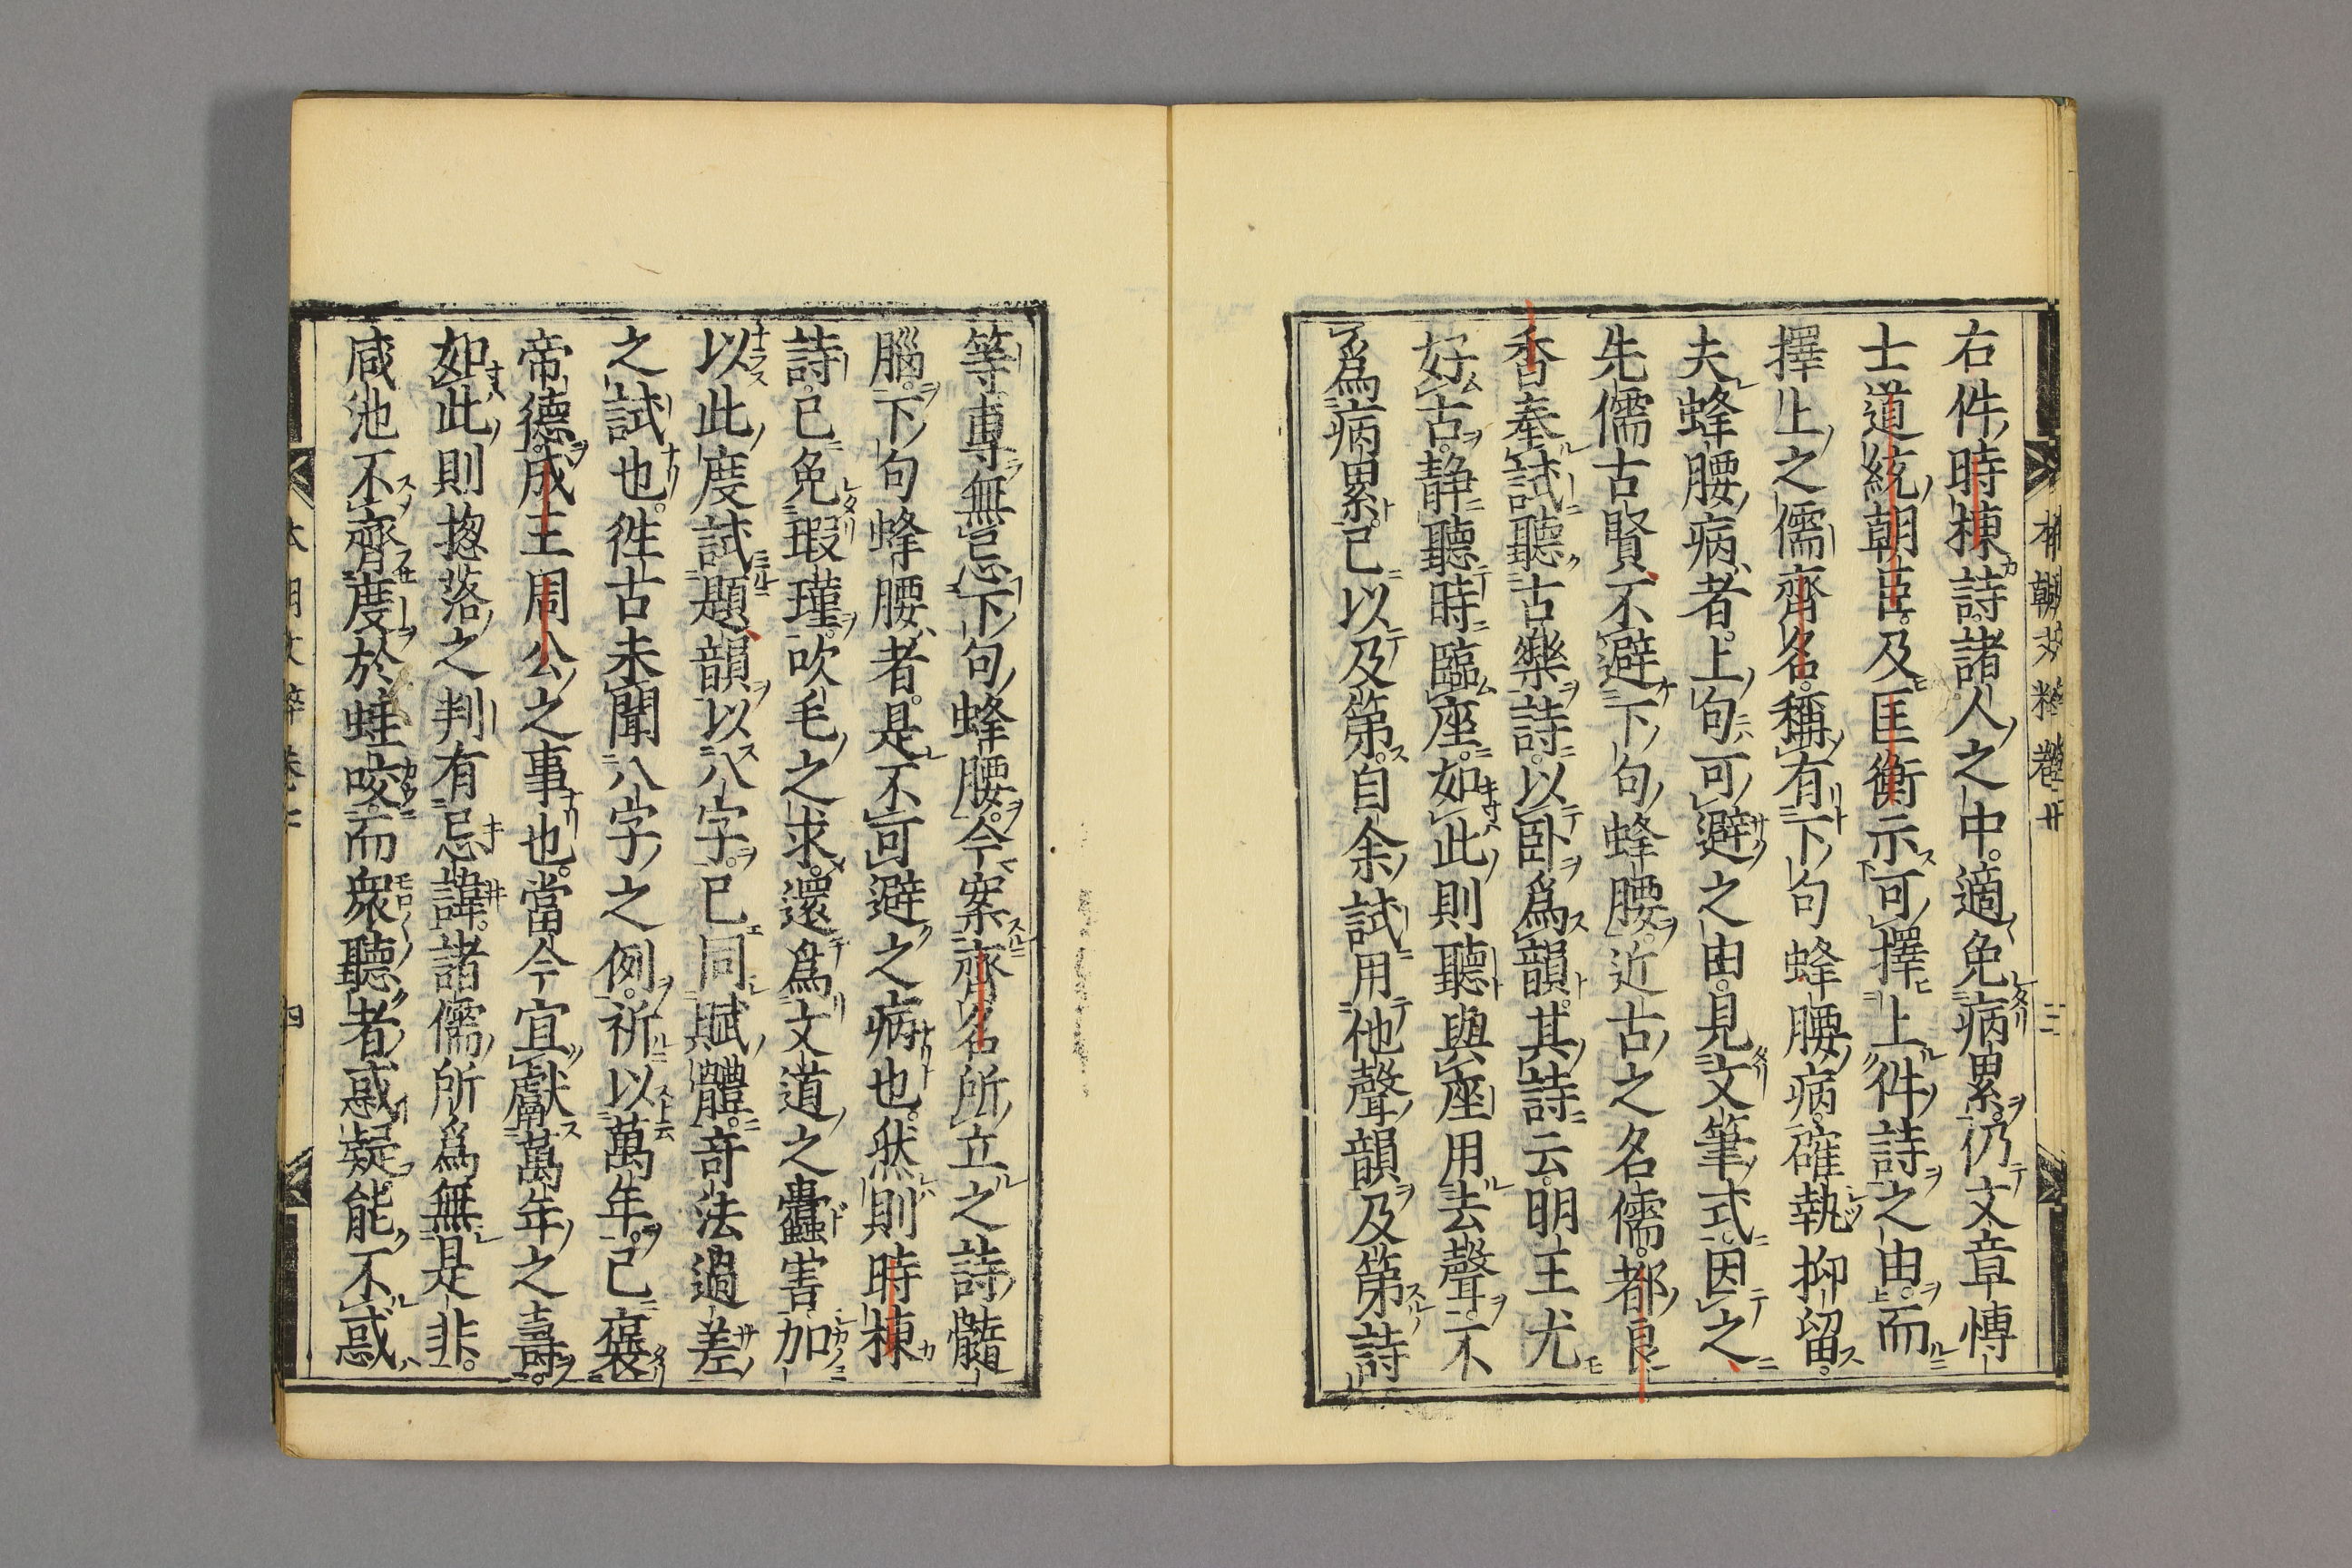 本朝文粹卷七 三
右件時棟詩諸人之中適免病累仍文章博
士道統朝臣及匡衡示可擇上件詩之由而
擇上之儒齊名稱有下句蜂腰病確執抑留
夫蜂腰病者上句可避之由見文筆式因之
先儒古賢不避下句蜂腰近古之名儒都良
香奉試聽古樂詩以臥爲韻其詩云明王尤
好古靜聽時臨座如此則聽與座用去聲不
爲病累已以及第自余試用他聲韻及第詩
等專無忌下句蜂腰今案齊名所立之詩髓
腦下句蜂腰者是不可避之病也然則時棟
詩已免瑕瑾吹毛之求還爲文道之蠹害加
以此度試題韻以八字已同賦體奇法過差
之試也徃古未聞八字之例祈以萬年已褒
帝德成王周公之事也當今宜獻萬年之壽
如此則揔落之判有忌諱諸儒所爲無是非
咸池不齊度於蛙咬而衆聽者惑疑能不惑
本朝文粹卷七 四